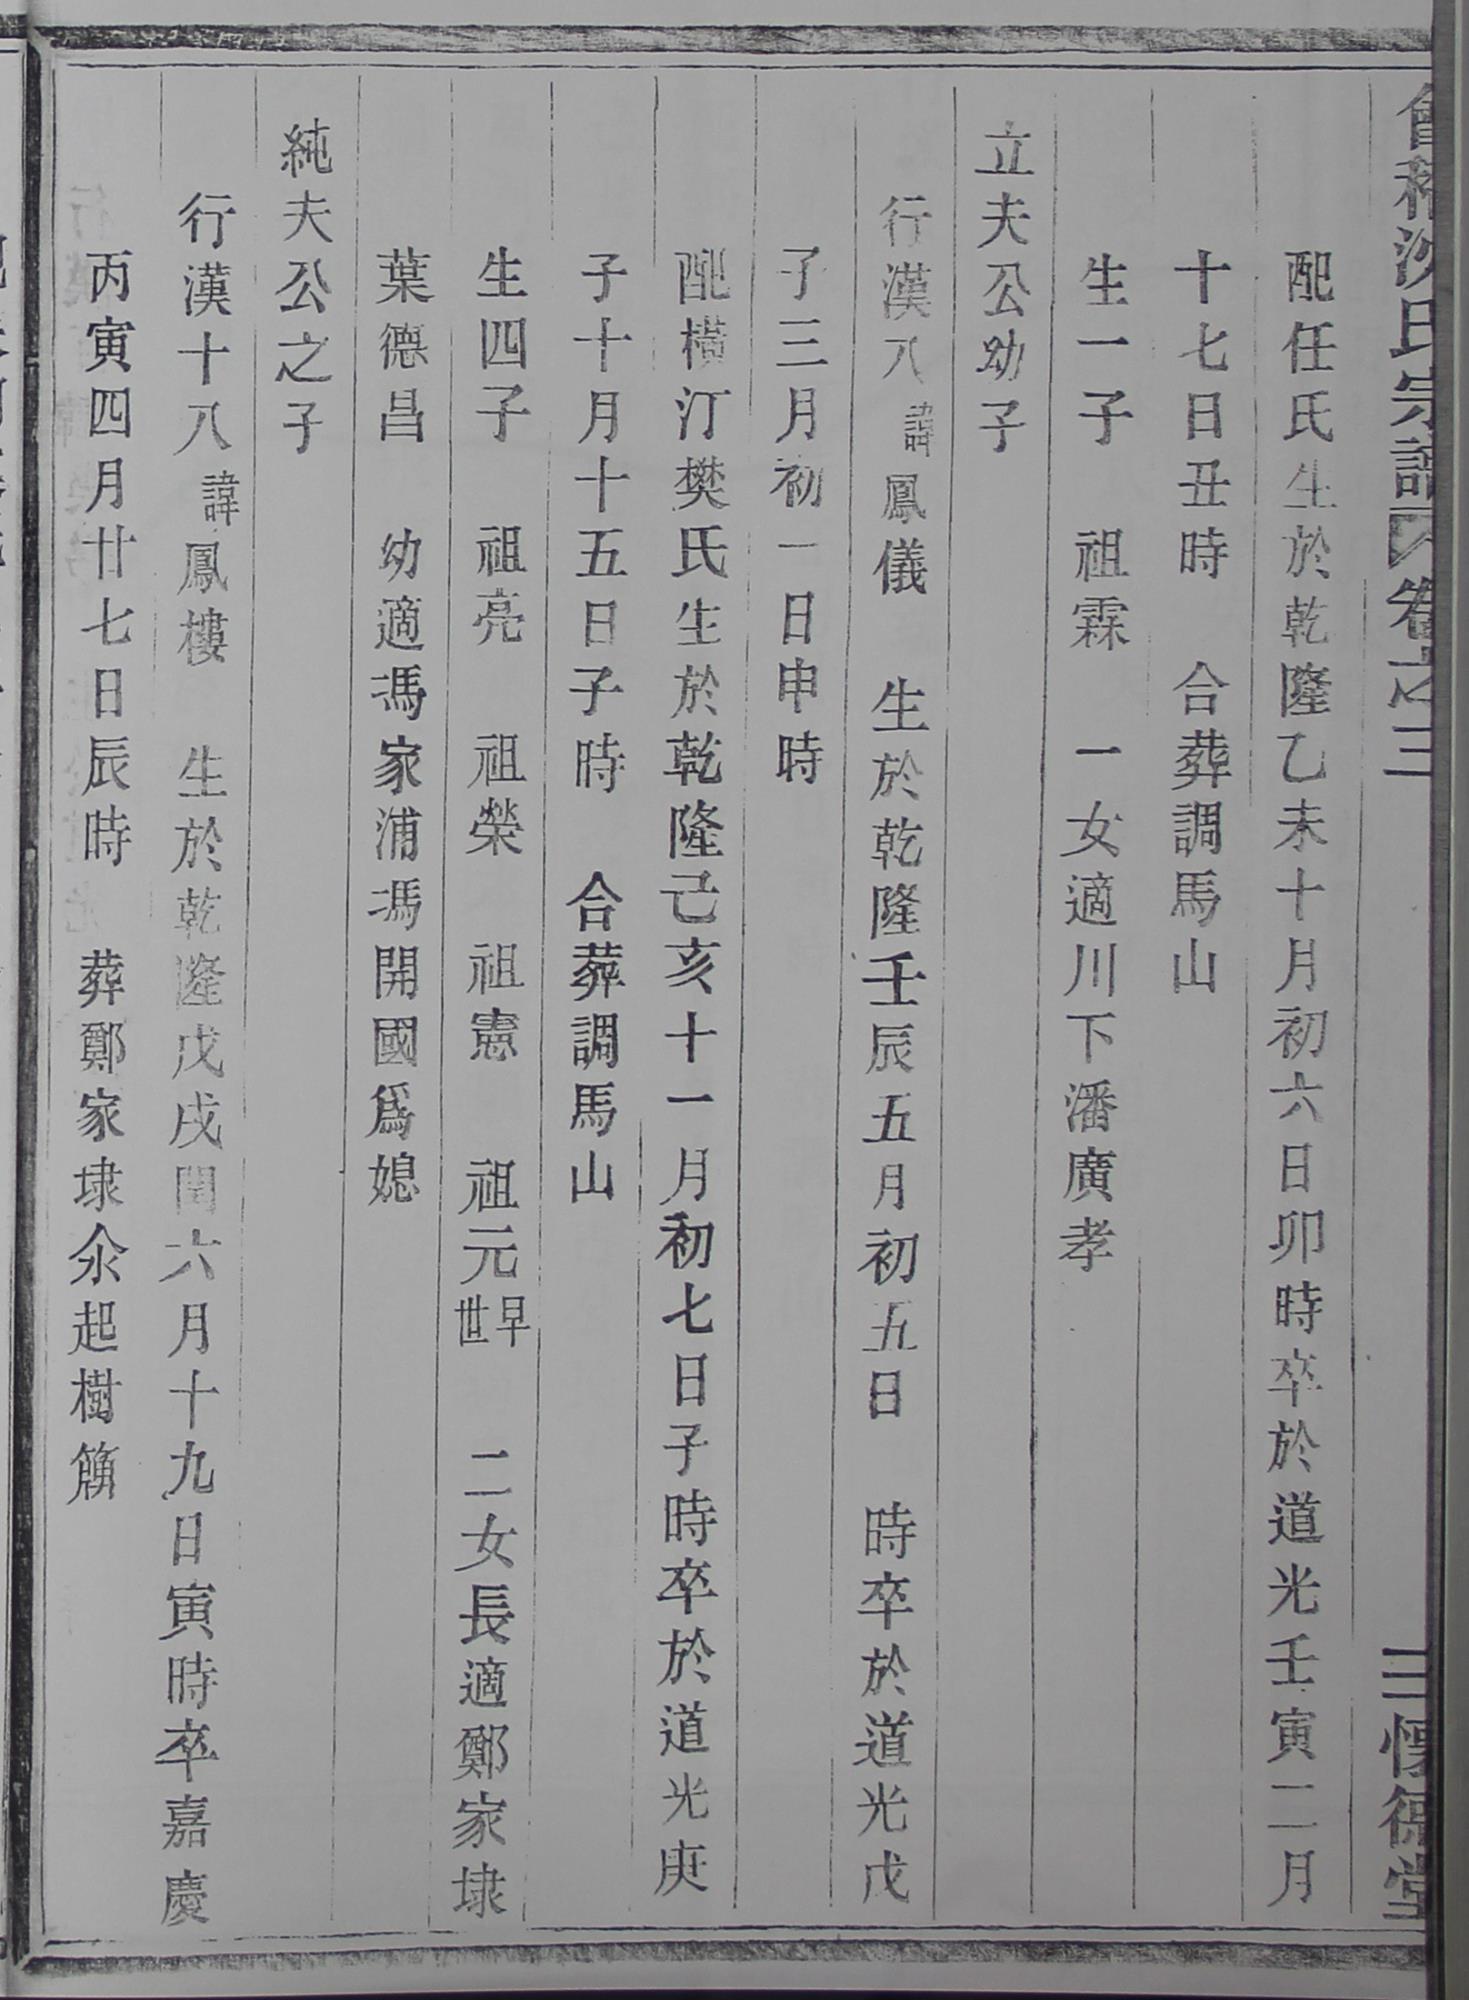 會稽沈氏宗譜 卷之三 三 懷德堂
配任氏生於乾隆乙未十月初六日卯時卒於道光壬寅二月
十七日丑時 合葬調馬山
生一子 祖霖 一女適川下潘廣孝
立夫公幼子
行漢八諱鳳儀 生於乾隆壬辰五月初五日 時卒於道光戊
子三月初一日申時
配橫汀樊氏生於乾隆己亥十一月初七日子時卒於道光庚
子十月十五日子時 合葬調馬山
生四子 祖亮 祖榮 祖憲 祖元早世 二女長適鄭家埭
葉德昌 幼適馮家浦馮開國爲媳
純夫公之子
行漢十八諱鳳樓 生於乾隆戊戌閏六月十九日寅時卒嘉慶
丙寅四月廿七日辰時 葬鄭家埭汆起樹